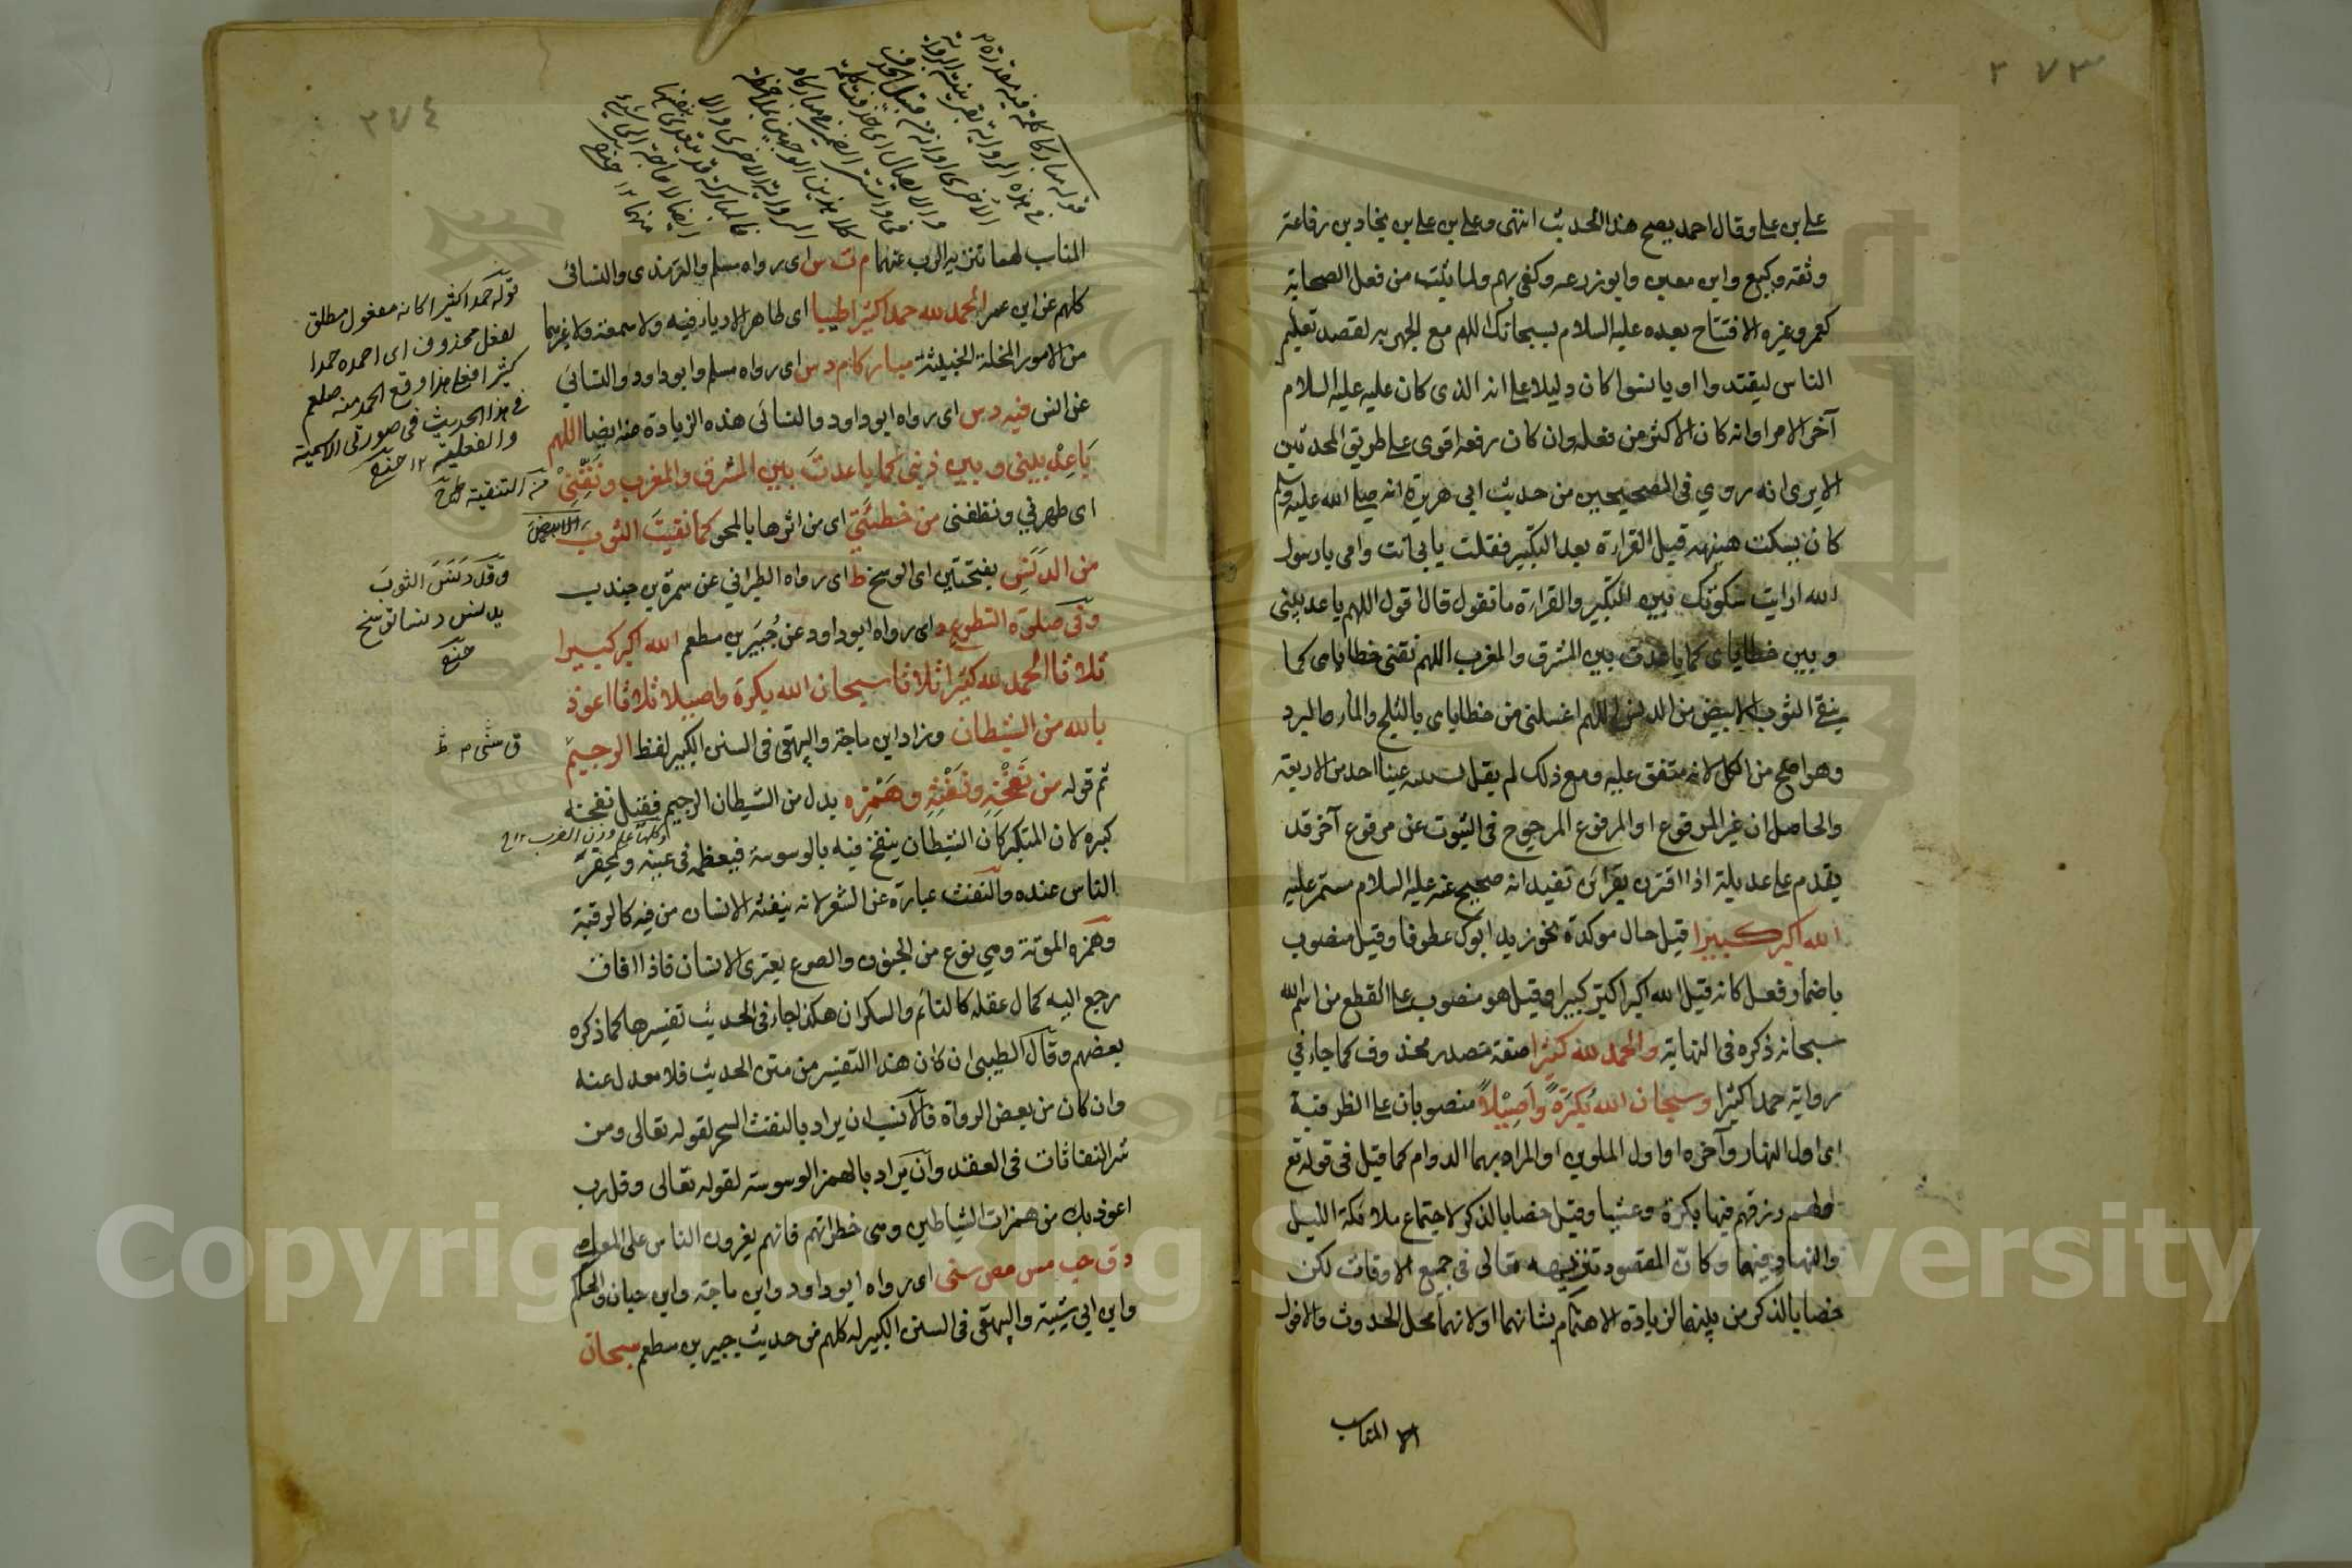 ٢٧٣
علي بن علي وقال احمد يصح هذا الحديث انتهى وعلي بن علي بن نجاد بن رفاعة
وثقه وكيع وابن معين وابو زرعه وكفى بهم ولما يثبت من فعل الصحابة
كعمر وغيره الافتتاح بعده عليه السلام بسبحانك اللهم مع الجهر به لقصد تعليم
الناس ليقتدوا او يانسوا كان دليلا على انه الذى كان عليه عليه السلام
آخر الامر او انه كان الاكثر من فعله وان كان رفعه اقوى على طريق المحدثين
الا يرى انه روي فى الصحيحين من حديث ابى هريرة انه صلى الله عليه وسلم
كان يسكت هنيهة قبل القراءة بعد التكبير فقلت بابى انت وامى يا رسول
الله ارايت سكوتك بين التكبير والقراءة ما تقول قال اقول اللهم باعد بينى
وبين خطاياى كما باعدت بين المشرق والمغرب اللهم نقنى خطاياى كما
ينقى الثوب الابيض من الدنس اللهم اغسلنى من خطاياى بالثلج والماء والبرد
وهو اصح من الكل لانه متفق عليه ومع ذلك لم يقل بسنيته عينا احد من الاربعة
والحاصل ان غير المرفوع او المرفوع المرجوح فى الثبوت عن مرفوع آخر قد
يقدم على عديله اذا اقترن بقرائن تفيد انه صحيح عنه عليه السلام مستمر عليه
الله اكبر كبيرا قيل حال موكدة نحو زيد ابوك عطوفا وقيل منصوب
باضمار فعل كانه قيل الله اكبر اكبر كبيرا وقيل هو منصوب على القطع من اسم الله
سبحانه ذكره فى النهاية والحمد لله كثيرا صفة مصدر محذوف كما جاء في
رواية حمدا كثيرا وسبحان الله بُكرَةً وأَصِيْلاً منصوبان على الظرفية
اى اول النهار وآخره او اول الملوين او المراد بهما الدوام كما قيل فى قوله تع
ولهم رزقهم فيها بكرة وعشيا وقيل خصا بالذكر لاجتماع ملائكة الليل
والنهار فيهما وكان المقصود تنزيهه تعالى في جميع الاوقات لكن
خصا بالذكر من بينها لزيادة الاهتمام بشانهما او لانهما محل الحدوث والافول
المناسب
٢٧٤
قوله مباركا كلمة فيه مقدرة
فى هذه الرواية بقرينة الرواية
الاخرى او انه من قبيل الحذف
والايصال اى حذفت كلمة
فى واستتر الضمير فى مباركا و
كلا هذين الوجهين بملاحظة
الرواية الاخرى والا
فالمباركة قد يتعدى بنفسها
ايضا لا حاجة الى شىء
منهما ١٢
المناسب لهما تنزيه الرب عنهما م ت س اى رواه مسلم والترمذى والنسائى
كلهم عن ابن عمر الحمد لله حمدا كثيرا طيبا اى طاهرا لا رياء فيه ولا سمعة ولا غيرهما
من الامور المخلة الخبيثة مباركا م د س اى رواه مسلم وابو داود والنسائي
عن انس فيه د س اى رواه ابو داود والنسائى هذه الزيادة عنه ايضا اللهم
بَاعِدْ بينى وبين ذنبى كما باعدتَ بين المشرق والمغرب ونَقِّنِيْ
اى طهرنى ونظفنى من خطيئَتِي اى من اثرها بالمحو كما نقيتَ الثوبَ
الابيضَ
من الدَنَسِ بفتحتين اى الوسخ ط اى رواه الطبراني عن سمرة بن جندب
وفى صلوة التطوع د اى رواه ابو داود عن جُبَير بن مطعم الله اكبر كبيرا
ثلاثا الحمد لله كثيرا ثلاثا سبحان الله بكرة واصيلا ثلاثا اعوذ
بالله من الشيطان وزاد ابن ماجة والبيهقى فى السنن الكبير لفظ الرجيم
ثم قوله من نَفْخِهِ ونَفْثِهِ وهَمْزِه بدل من الشيطان الرجيم فقيل نفخه
كبره لان المتكبر كان الشيطان ينفخ فيه بالوسوسة فيعظمه فى عينه ويحقر
الناس عنده والنفث عبارة عن الشعر لانه ينفثه الانسان من فيه كالرقية
وهمزه الموتة وهي نوع من الجنون والصرع يعترى الانسان فاذا افاق
رجع اليه كمال عقله كالنائم والسكران هكذا جاء فى الحديث تفسيرها كما ذكره
بعضهم وقال الطيبى ان كان هذا التفسير من متن الحديث فلا معدل عنه
وان كان من بعض الرواة فالانسب ان يراد بالنفث السحر لقوله تعالى ومن
شر النفاثات فى العقد وان يراد بالهمز الوسوسة لقوله تعالى وقل رب
اعوذ بك من همزات الشياطين وهى خطراتهم فانهم يغرون الناس على المعاصى
د ق حب مس مص سنى اى رواه ابو داود وابن ماجة وابن حبان والحاكم
وابن ابي شيبة والبيهقى فى السنن الكبير له كلهم من حديث جبير بن مطعم سبحان
قوله حمدا كثيرا كانه مفعول مطلق
لفعل محذوف اى احمده حمدا
كثيرا فعلى هذا وقع الحمد منه صلعم
فى هذا الحديث فى صورتى الاسمية
والفعلية ١٢
من التنقية
وقد دَنَسَ الثوبَ
يدنس دنسا توسخ
Copyright © King Saud University